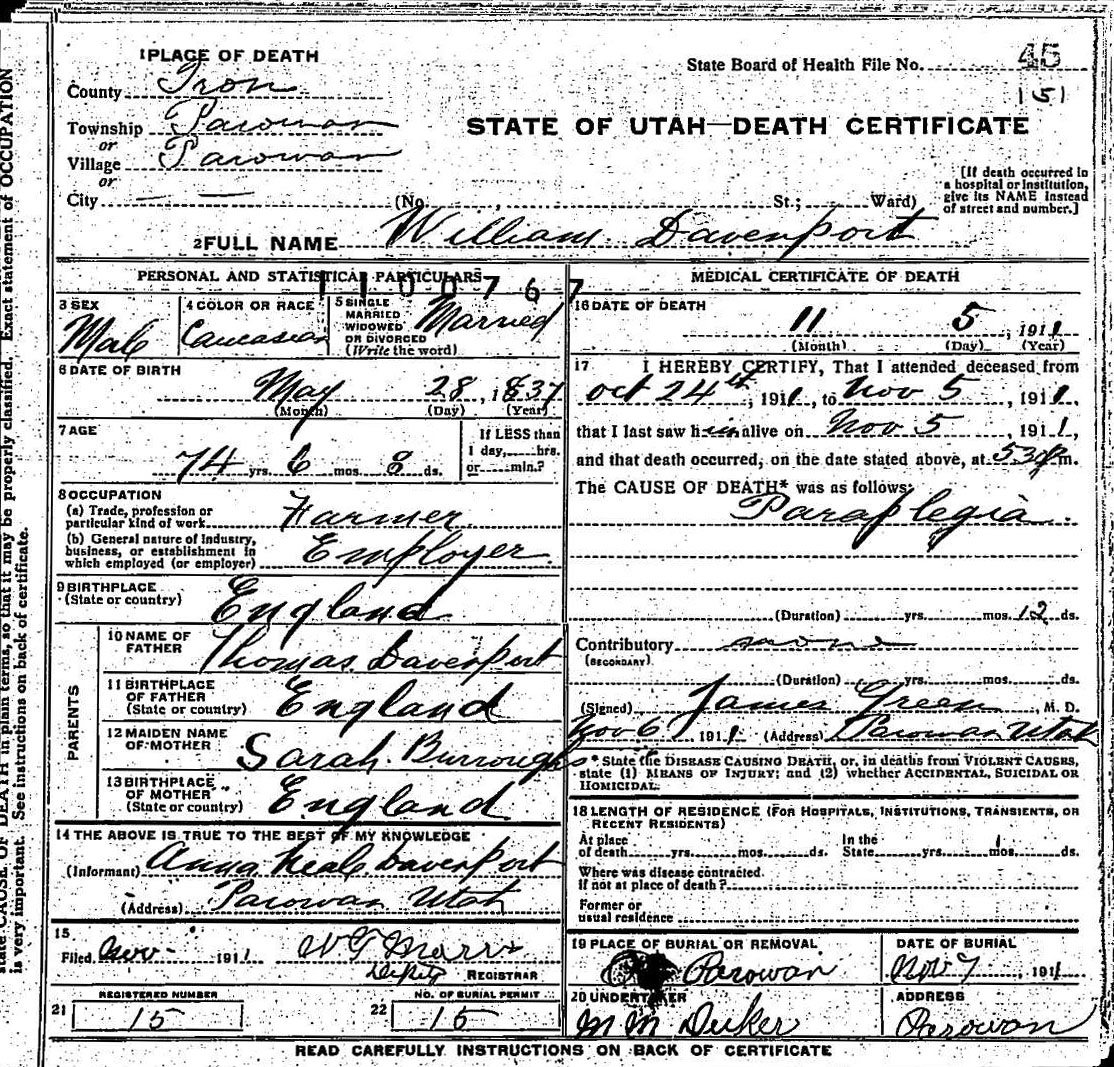 1 PLACE OF DEATH
County Iron
Township Parowan
or
Village Parowan
or
City — —
(No. , St.; Ward)
State Board of Health File No. 45
151
STATE OF UTAH—DEATH CERTIFICATE
[If death occurred in
a hospital or institution,
give its NAME instead
of street and number.]
2 FULL NAME William Davenport
PERSONAL AND STATISTICAL PARTICULARS
1100767
3 SEX
Male
4 COLOR OR RACE
Caucasian
5 SINGLE
MARRIED
WIDOWED
OR DIVORCED
(Write the word)
Married
6 DATE OF BIRTH
May 28, 1837
(Month) (Day) (Year)
7 AGE
74 yrs. 6 mos. 8 ds.
If LESS than
1 day, hrs.
or min.?
8 OCCUPATION
(a) Trade, profession or
particular kind of work Farmer
(b) General nature of Industry,
business, or establishment in
which employed (or employer) Employer
9 BIRTHPLACE
(State or country) England
PARENTS
10 NAME OF
FATHER Thomas Davenport
11 BIRTHPLACE
OF FATHER
(State or country) England
12 MAIDEN NAME
OF MOTHER Sarah Burroughs
13 BIRTHPLACE
OF MOTHER
(State or country) England
14 THE ABOVE IS TRUE TO THE BEST OF MY KNOWLEDGE
(Informant) Anna Neals Davenport
(Address) Parowan Utah
15
Filed Nov - 1911
Deputy REGISTRAR
21 REGISTERED NUMBER
15
22 NO. OF BURIAL PERMIT
15
MEDICAL CERTIFICATE OF DEATH
16 DATE OF DEATH
11 5, 1911
(Month) (Day) (Year)
17 I HEREBY CERTIFY, That I attended deceased from
Oct 24th, 1911, to Nov 5, 1911,
that I last saw him alive on Nov 5, 1911,
and that death occurred, on the date stated above, at 530 P m.
The CAUSE OF DEATH* was as follows:
Paraplegia
(Duration) yrs. mos. 12 ds.
Contributory none
(SECONDARY)
(Duration) yrs. mos. ds.
(Signed) James Green, M. D.
Nov 6 1911 (Address) Parowan Utah
* State the DISEASE CAUSING DEATH, or, in deaths from VIOLENT CAUSES,
state (1) MEANS OF INJURY; and (2) whether ACCIDENTAL, SUICIDAL OR
HOMICIDAL.
18 LENGTH OF RESIDENCE (FOR HOSPITALS, INSTITUTIONS, TRANSIENTS, OR
RECENT RESIDENTS)
At place
of death yrs. mos. ds.
In the
State yrs. mos. ds.
Where was disease contracted
if not at place of death?
Former or
usual residence
19 PLACE OF BURIAL OR REMOVAL
Parowan
DATE OF BURIAL
Nov 7 1911
20 UNDERTAKER
M M Decker
ADDRESS
Parowan
READ CAREFULLY INSTRUCTIONS ON BACK OF CERTIFICATE
state CAUSE OF DEATH in plain terms, so that it may be properly classified. Exact statement of OCCUPATION
is very important. See instructions on back of certificate.